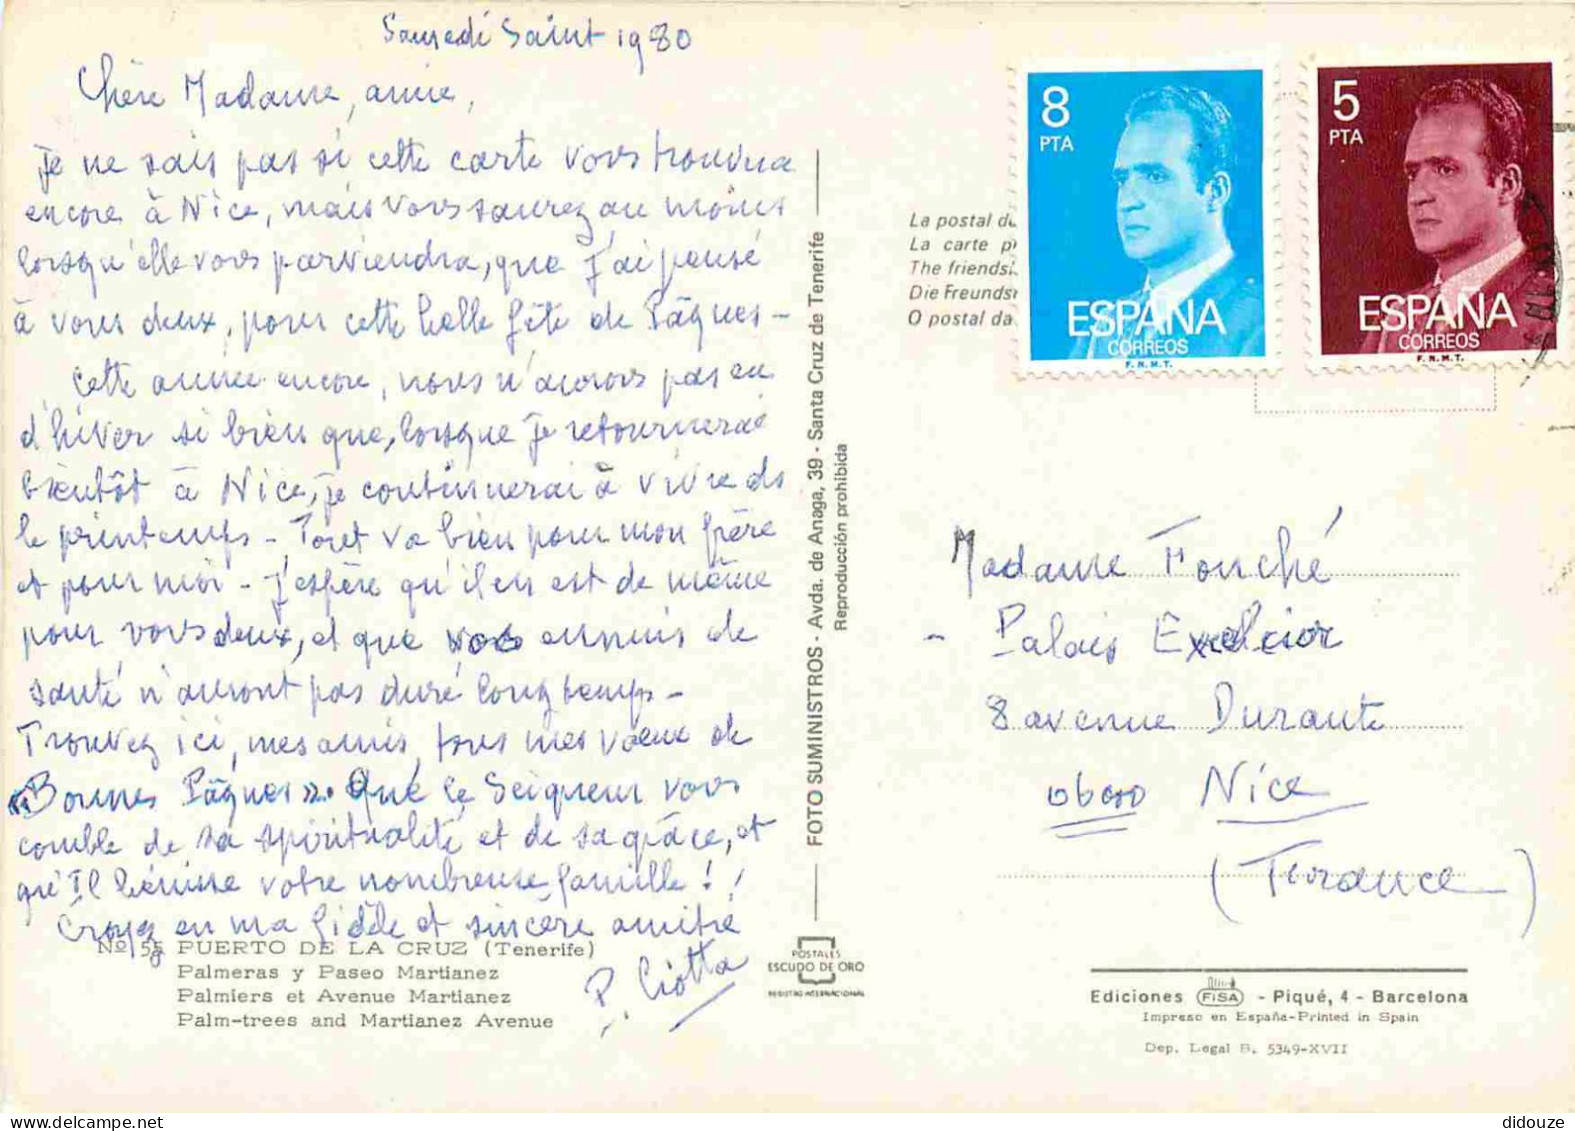 Samedi Saint 1980
Chère Madame, amie,
Je ne sais pas si cette carte vous trouvera
encore à Nice, mais vous saurez au moins
lorsqu'elle vous parviendra, que j'ai pensé
à vous deux, pour cette belle fête de Pâques -
Cette année encore, nous n'aurons pas eu
d'hiver si bien que, lorsque je retournerai
bientôt à Nice, je continuerai à vivre ds
le printemps - Tout va bien pour mon frère
et pour moi - J'espère qu'il en est de même
pour vous deux, et que vos ennuis de
santé n'auront pas duré longtemps -
Trouvez ici, mes amis, tous mes vœux de
"Bonnes Pâques". Que le Seigneur vous
comble de sa spiritualité et de sa grâce, et
qu'Il bénisse votre nombreuse famille ! !
Croyez en ma fidèle et sincère amitié
P. Ciotta
Nº 55 PUERTO DE LA CRUZ (Tenerife)
Palmeras y Paseo Martianez
Palmiers et Avenue Martianez
Palm-trees and Martianez Avenue
FOTO SUMINISTROS - Avda. de Anaga, 39 - Santa Cruz de Tenerife
Reproducción prohibida
POSTALES
ESCUDO DE ORO
REGISTRO INTERNACIONAL
La postal de
La carte p
The friends
Die Freunds
O postal da
8
PTA
ESPAÑA
CORREOS
F.N.M.T.
5
PTA
ESPAÑA
CORREOS
F.N.M.T.
Madame Fouché
- Palais Excelcior
8 avenue Durante
06000 Nice
(France)
Ediciones FISA - Piqué, 4 - Barcelona
Impreso en España-Printed in Spain
Dep. Legal B. 5349-XVII
didouze